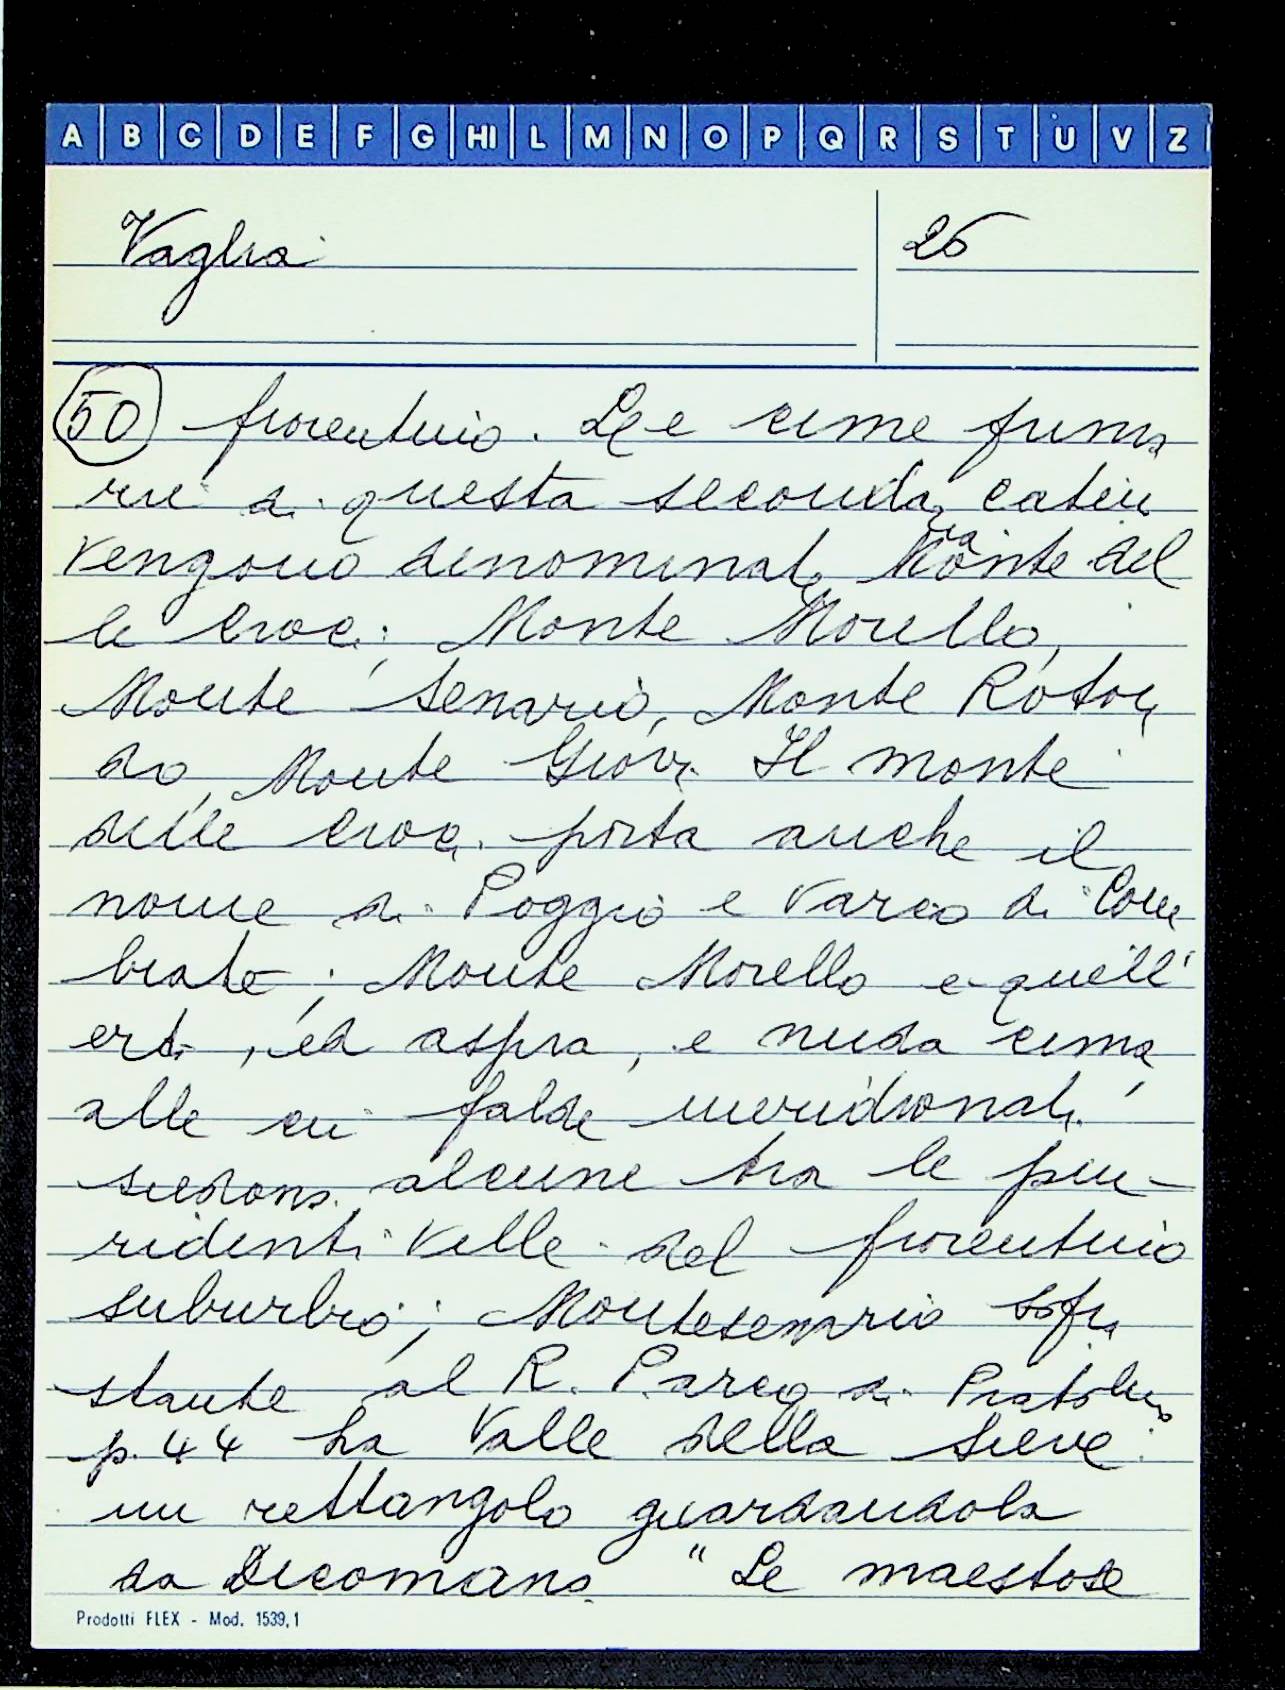 A B C D E F G HI L M N O P Q R S T U V Z
Vaglia 26
50 fiorentino. Le cime prima
rie di questa seconda catena
vengono denominate Monte del
le Croci; Monte Morello,
Monte Senario, Monte Roton
do, Monte Giovi. Il monte
delle Croci porta anche il
nome di Poggio e Varco di Com
biate; Monte Morello e quell'
erta, ed aspra, e nuda cima,
alle cui falde meridionali
siedono alcune tra le piu-
ridenti ville del fiorentino
suburbio; Montesenario sovra
stante al R. Parco di Pratolino
p. 44 ha Valle della Sieve
un rettangolo guardandola
da Dicomano "Le maestose
Prodotti FLEX - Mod. 1539,1